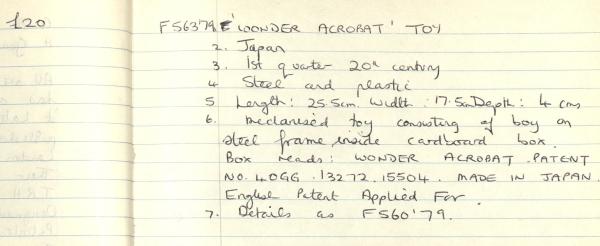 120 FS63'79 'WONDER ACROBAT' TOY
2. Japan
3. 1st quarter 20th century
4 Steel and plastic
5 Length: 25.5cm. Width: 17.5cm Depth: 4 cms
6. Mechanised toy consisting of boy on
steel frame inside cardboard box.
Box reads: WONDER ACROBAT. PATENT
NO. 40GG. 13272. 15504. MADE IN JAPAN.
English Patent Applied For.
7. Details as FS60'79.